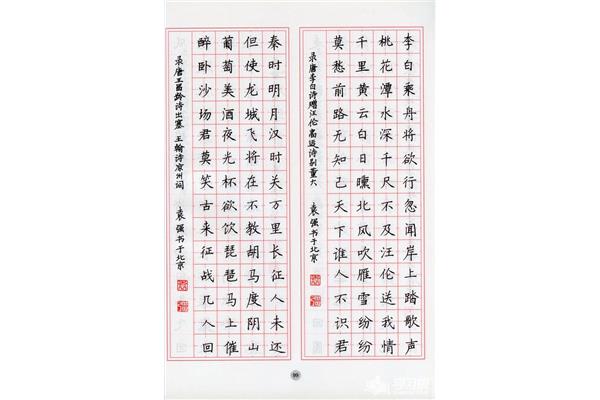 李白乘舟将欲行忽闻岸上踏歌声
桃花潭水深千尺不及汪伦送我情
千里黄云白日曛北风吹雁雪纷纷
莫愁前路无知己天下谁人不识君
录唐李白诗赠汪伦 高适诗别董大 袁强书于北京
秦时明月汉时关万里长征人未还
但使龙城飞将在不教胡马度阴山
葡萄美酒夜光杯欲饮琵琶马上催
醉卧沙场君莫笑古来征战几人回
录唐王昌龄诗出塞 王翰诗凉州词 袁强书于北京
99